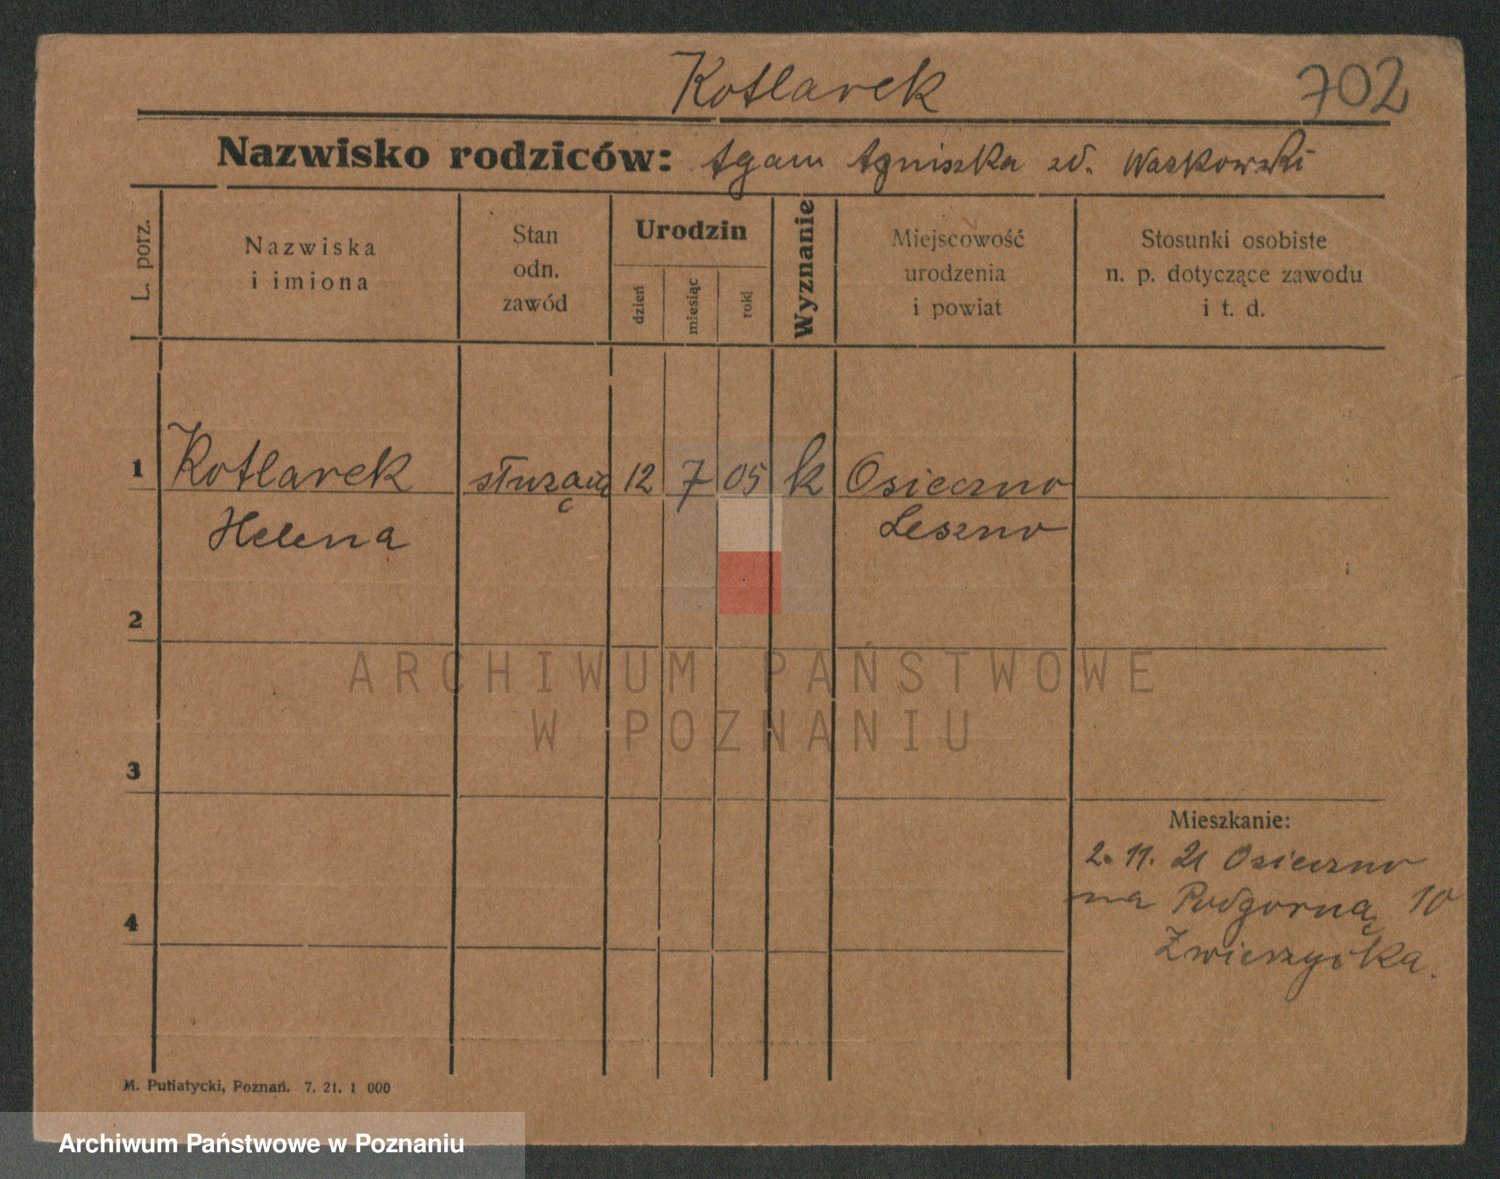 Kotlarek
702
Nazwisko rodziców: Agnieszka
L. porz.
Nazwiska
i imiona
Stan
odn.
zawód
Urodzin
dzień
miesiąc
rok
Wyznanie
Miejscowość
urodzenia
i powiat
Stosunki osobiste
n. p. dotyczące zawodu
i t. d.
1
Kotlarek służąca 12 7 05 k Osieczno
Helena Leszno
2
ARCHIWUM PAŃSTWOWE
W POZNANIU
3
Mieszkanie:
2. 11. 21 Osieczno
na Podgorną 10
4
M. Putiatycki, Poznań. 7. 21. 1 000
Archiwum Państwowe w Poznaniu